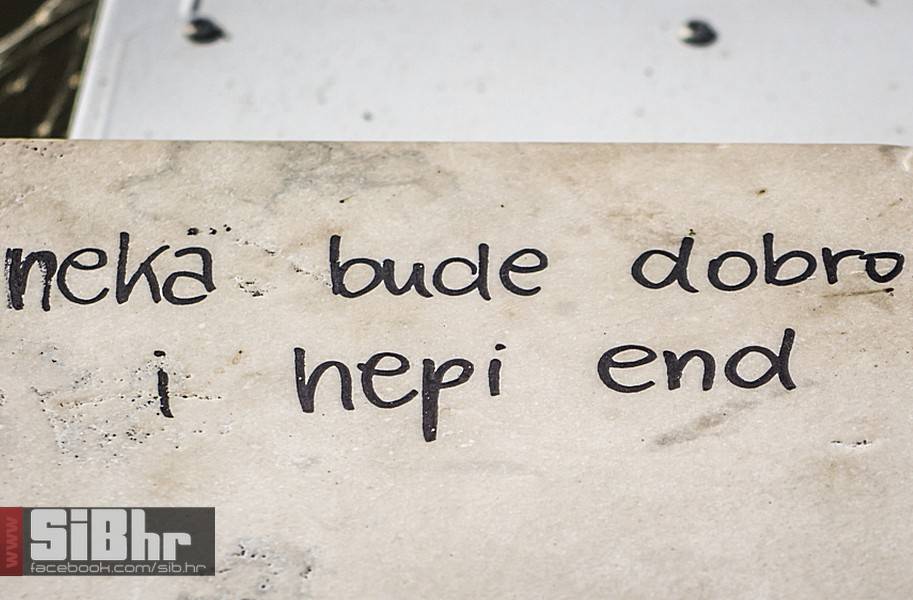 neka bude dobro
i hepi end
www
SiBhr
facebook.com/sib.hr